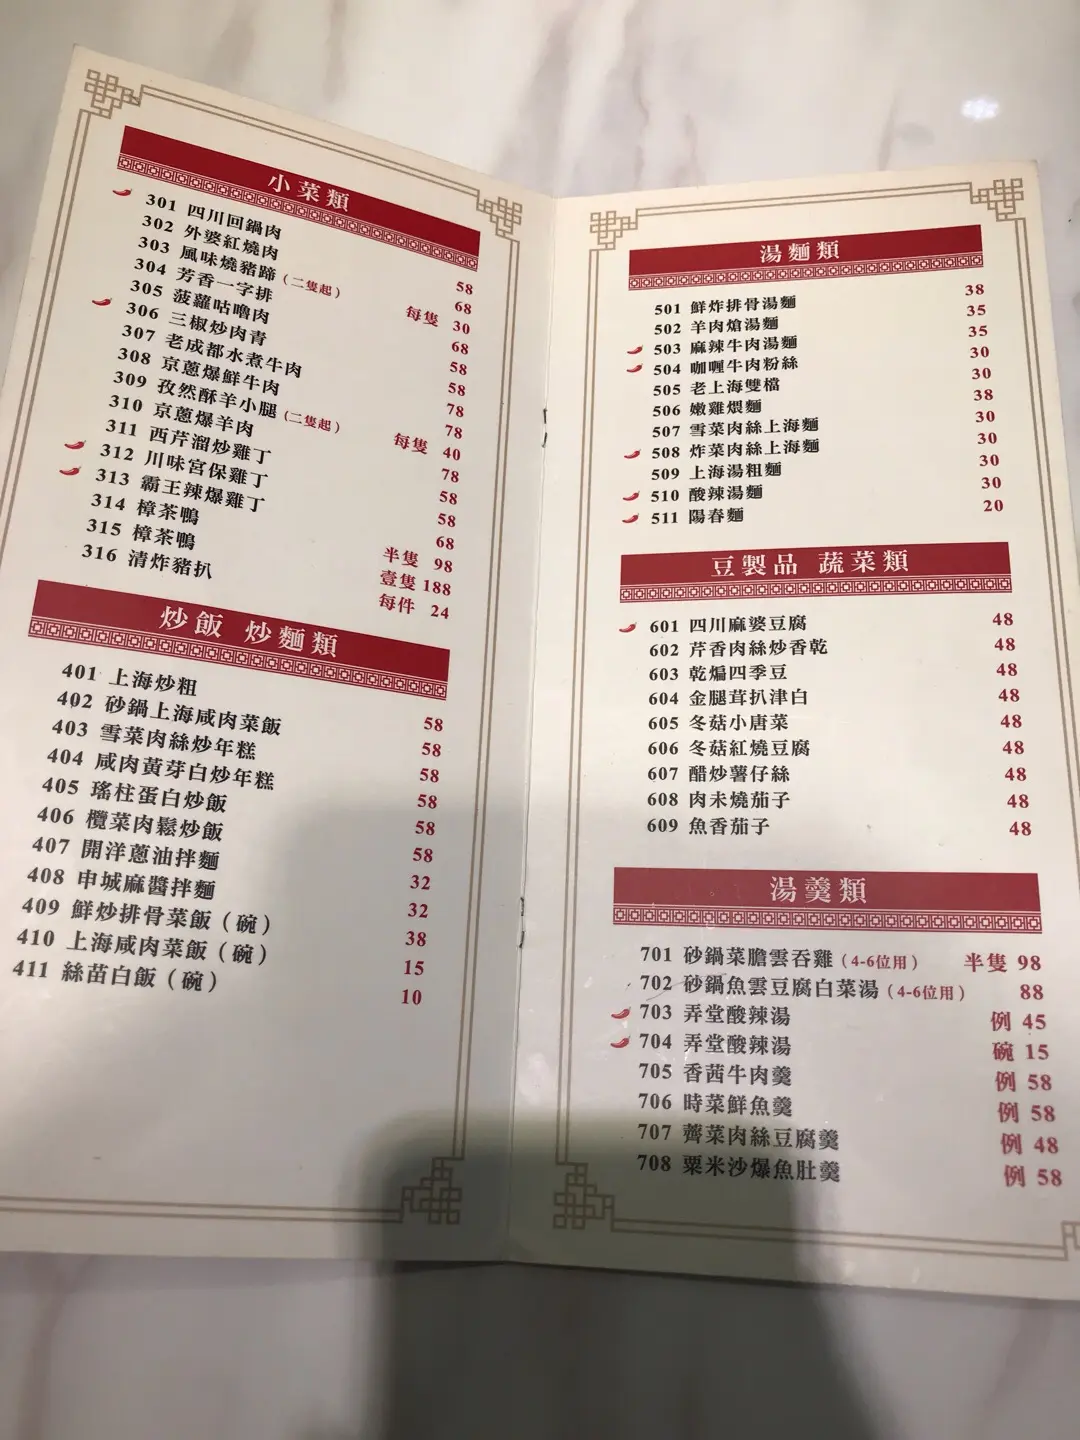 小菜類
301 四川回鍋肉 58
302 外婆紅燒肉 68
303 風味燒豬蹄(二隻起) 每隻 30
304 芳香一字排 68
305 菠蘿咕嚕肉 58
306 三椒炒肉青 58
307 老成都水煮牛肉 78
308 京蔥爆鮮牛肉 78
309 孜然酥羊小腿(二隻起) 每隻 40
310 京蔥爆羊肉 78
311 西芹溜炒雞丁 58
312 川味宮保雞丁 58
313 霸王辣爆雞丁 68
314 樟茶鴨 半隻 98
315 樟茶鴨 壹隻 188
316 清炸豬扒 每件 24
炒飯 炒麵類
401 上海炒粗 58
402 砂鍋上海咸肉菜飯 58
403 雪菜肉絲炒年糕 58
404 咸肉黃芽白炒年糕 58
405 瑤柱蛋白炒飯 58
406 欖菜肉鬆炒飯 58
407 開洋蔥油拌麵 32
408 申城麻醬拌麵 32
409 鮮炒排骨菜飯(碗) 38
410 上海咸肉菜飯(碗) 15
411 絲苗白飯(碗) 10
湯麵類
501 鮮炸排骨湯麵 38
502 羊肉熗湯麵 35
503 麻辣牛肉湯麵 35
504 咖喱牛肉粉絲 30
505 老上海雙檔 30
506 嫩雞煨麵 38
507 雪菜肉絲上海麵 30
508 炸菜肉絲上海麵 30
509 上海湯粗麵 30
510 酸辣湯麵 30
511 陽春麵 20
豆製品 蔬菜類
601 四川麻婆豆腐 48
602 芹香肉絲炒香乾 48
603 乾煸四季豆 48
604 金腿茸扒津白 48
605 冬菇小唐菜 48
606 冬菇紅燒豆腐 48
607 醋炒薯仔絲 48
608 肉未燒茄子 48
609 魚香茄子 48
湯羹類
701 砂鍋菜膽雲吞雞(4-6位用) 半隻 98
702 砂鍋魚雲豆腐白菜湯(4-6位用) 88
703 弄堂酸辣湯 例 45
704 弄堂酸辣湯 碗 15
705 香茜牛肉羹 例 58
706 時菜鮮魚羹 例 58
707 薺菜肉絲豆腐羹 例 48
708 粟米沙爆魚肚羹 例 58